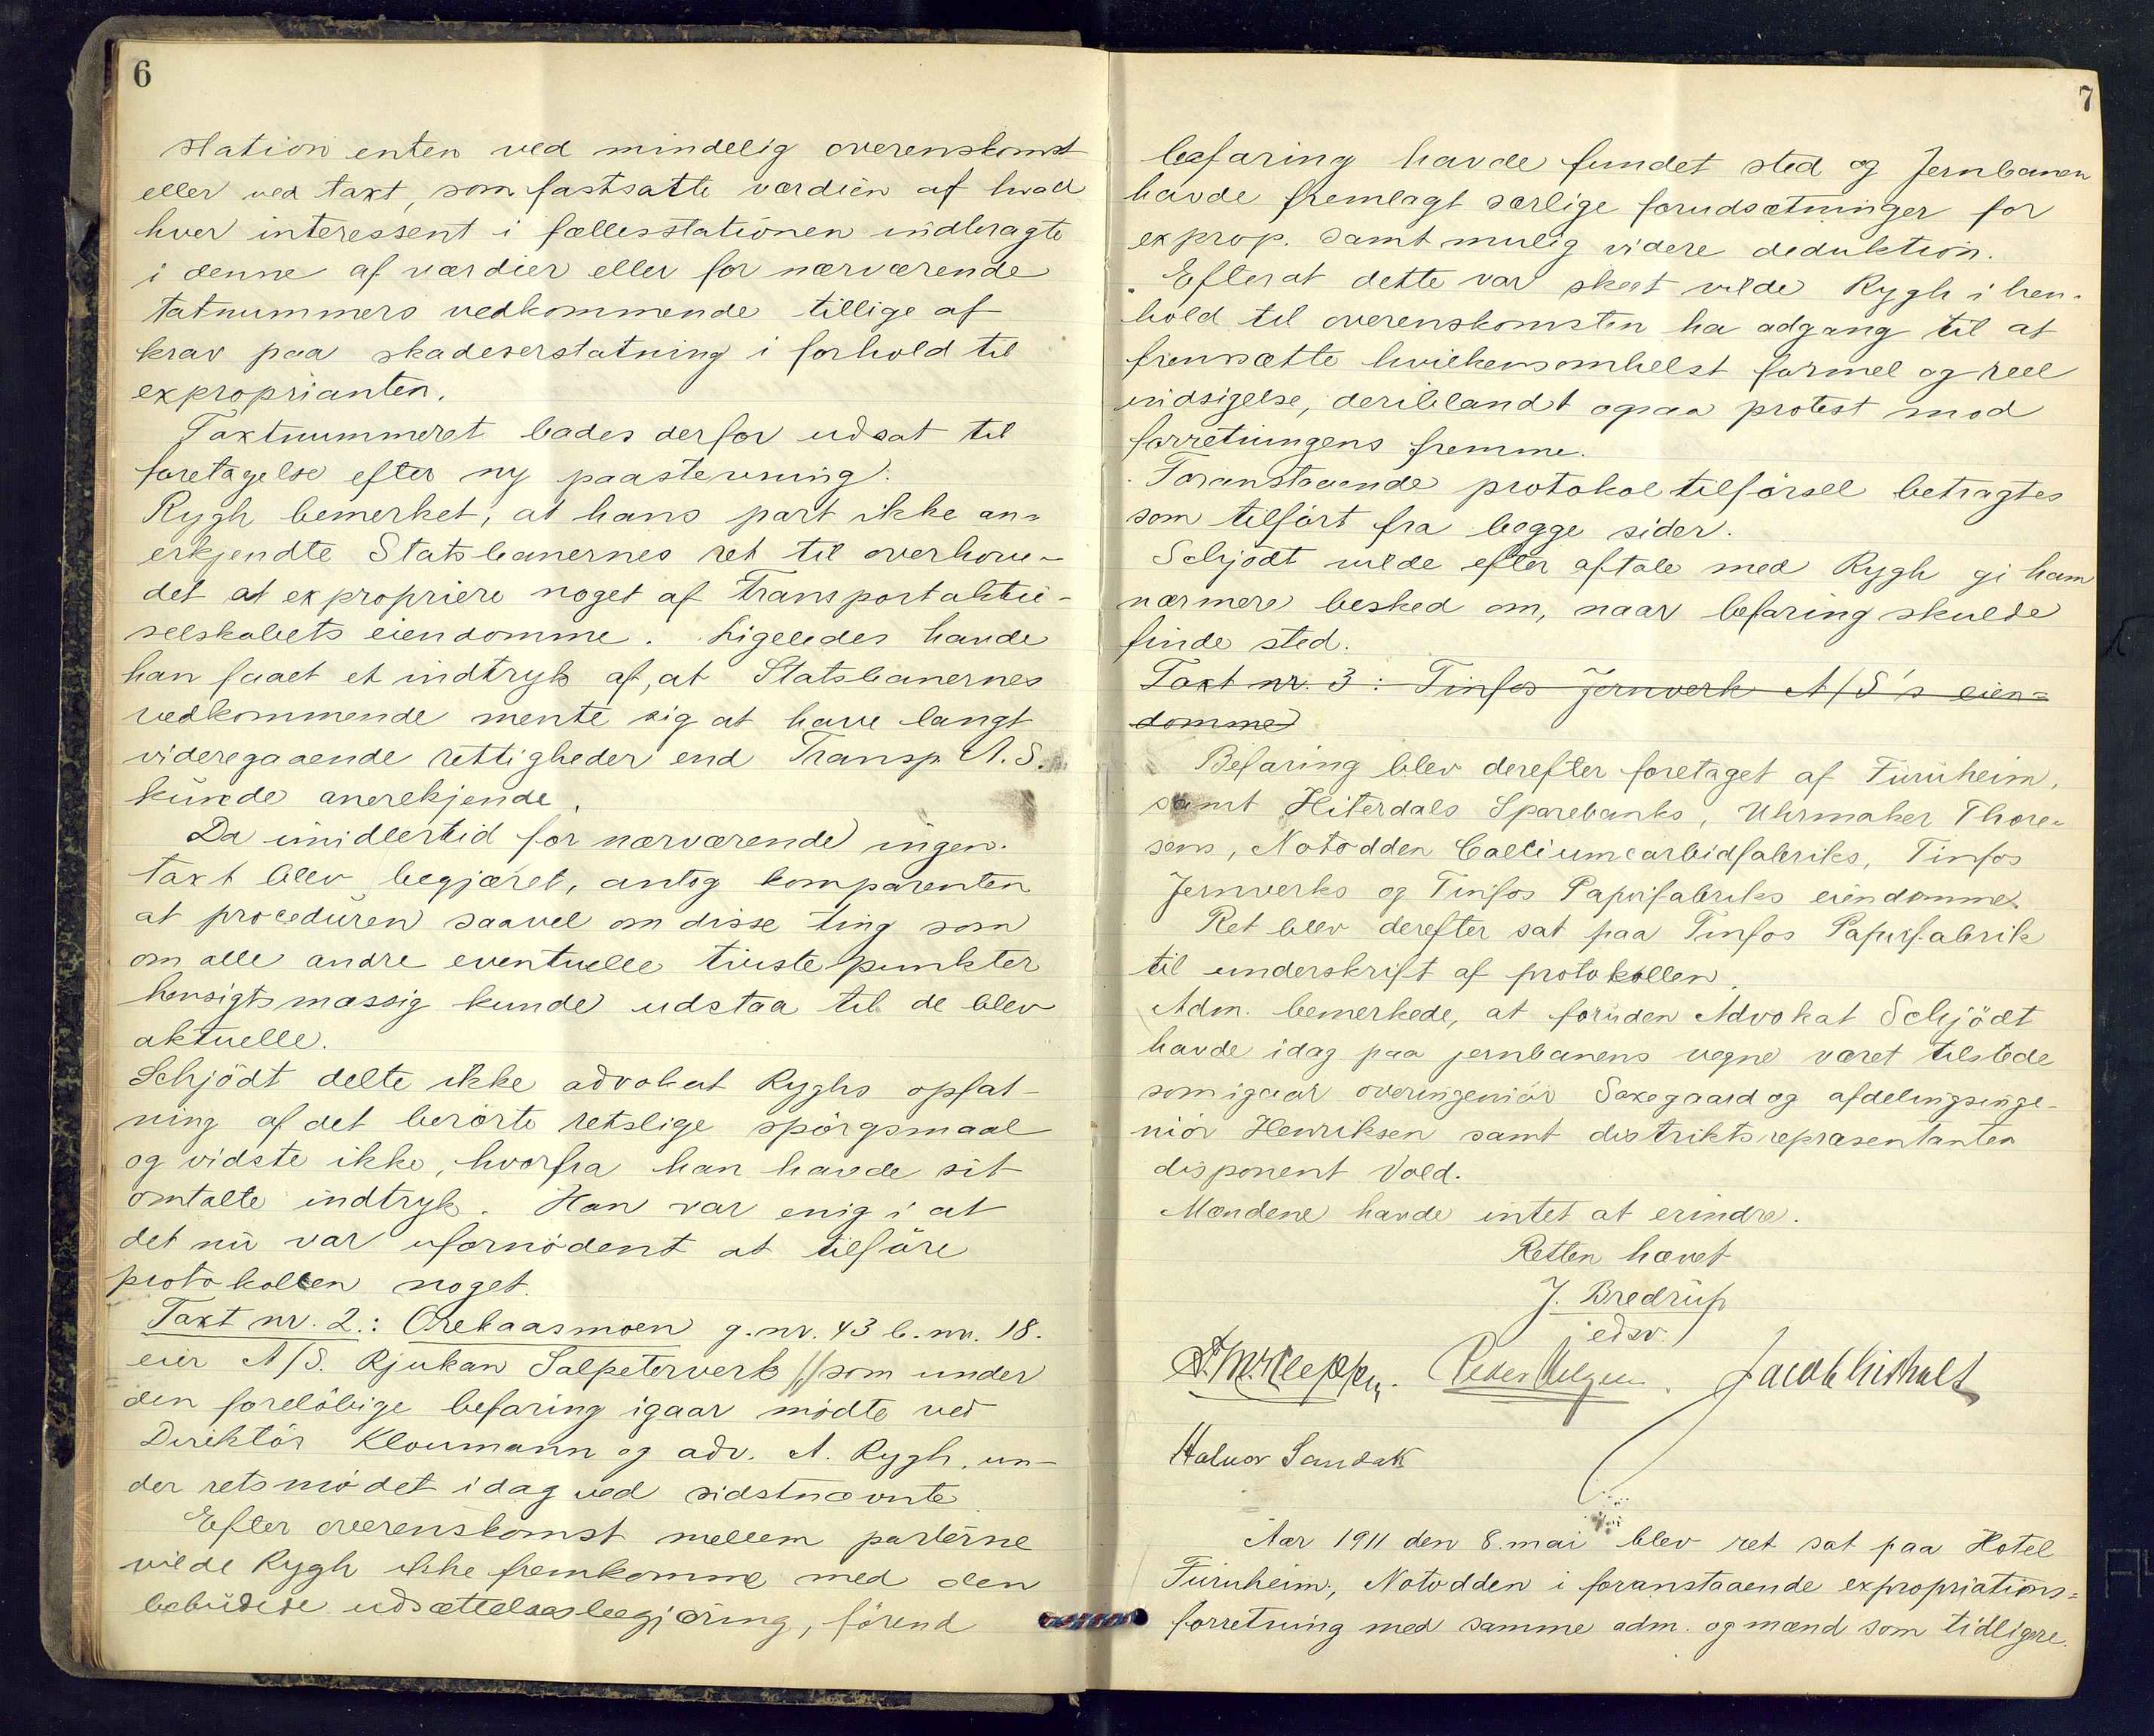 6
station enten ved mindelig overenskomst
eller ved taxt, som fastsatte værdien af hvad
hver interessent i fællesstationen indbragte
i denne af værdier eller for nærværende
tatnummers vedkommende tillige af
krav paa skadeserstatning i forhold til
exproprianten.
Taxtnummeret bades derfor udsat til
foretagelse efter ny paastevning.
Rygh bemerket, at hans part ikke an=
erkjendte Statsbanernes ret til overhove-
det at expropriere noget af Transportaktie-
selskabets eiendomme. Ligeledes havde
han faaet et indtryk af, at Statsbanernes
vedkommende mente sig at have langt
videregaaende rettigheder end Transp. A.S.
kunde anerekjende.
Da imidlertid for nærværende ingen
taxt blev begjæret, antog komparenten
at proceduren saavel om disse ting som
om alle andre eventuelle tvistepunkter
hensigtsmæssig kunde udstaa til de blev
aktuelle.
Schjödt delte ikke advokat Ryghs opfat-
ning af det berörte retslige spörgsmaal
og vidste ikke, hvorfra han havde sit
omtalte indtryk. Han var enig i at
det nu var ufornödent at tilföre
protokollen noget.
Taxt nr. 2.: Orebaasmoen g.nr. 43 b.nr. 18.
eier A/S. Rjukan Salpeterverk // som under
den forelöbige befaring igaar mödte ved
Direktör Kloumann og adv. A. Rygh, un-
der retsmödet idag ved sidstnævnte
Efter overenskomst mellem parterne
vilde Rygh ikke fremkomme med den
bebudede udsættelsesbegjæring, förend
7
befaring havde fundet sted og Jernbanen
havde fremlagt særlige forudsætninger for
exprop. samt mulig videre deduktion.
Efterat dette var skeet vilde Rygh i hen-
hold til overenskomsten ha adgang til at
fremsætte hvilkensomhelst formel og reel
indsigelse, deriblandt ogsaa protest mod
forretningens fremme.
Foranstaaende protokoltilförsel betragtes
som tilfört fra begge sider.
Schjödt vilde efter aftale med Rygh gi ham
nærmere besked om, naar befaring skulde
finde sted.
Taxt nr. 3: Tinfos Jernverk A/S's eien=
domme
Befaring blev derefter foretaget af Furuheim,
samt Hiterdals Sparebanks, Uhrmaker Thore-
sens, Notodden Calciumcarbidfabriks, Tinfos
Jernverks og Tinfos Papirfabriks eiendomme.
Ret blev derefter sat paa Tinfos Papirfabrik
til underskrift af protokollen.
Adm. bemerkede, at foruden Advokat Schjödt
havde idag paa jernbanens vegne været tilstede
som igaar overingeniör Saxegaard og afdelingsinge-
niör Henriksen samt distriktsrepræsentanten
disponent Vold.
Mændene havde intet at erindre.
Retten hævet
J. Bredrup
edsv.
Halvor Sandak
Aar 1911 den 8. mai blev ret sat paa Hotel
Furuheim, Notodden i foranstaaende expropriations=
forretning med samme adm. og mænd som tidligere.